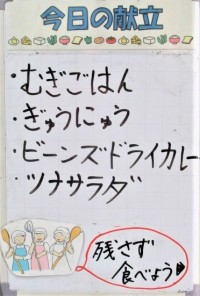 今日の献立
・むぎごはん
・ぎゅうにゅう
・ビーンズドライカレー
・ツナサラダ
残さず
食べよう